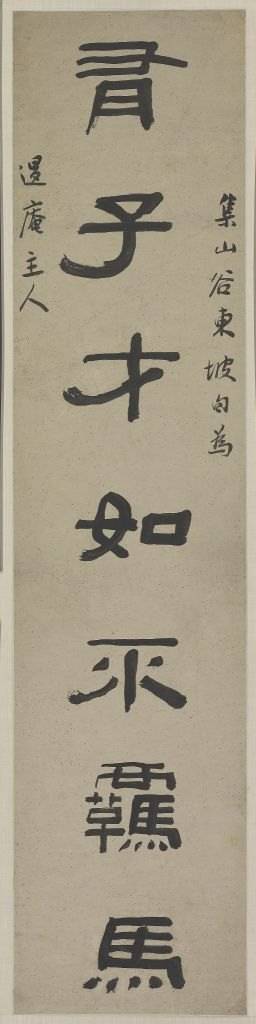 集山谷東坡句為
有子才如不羈馬
遐庵主人